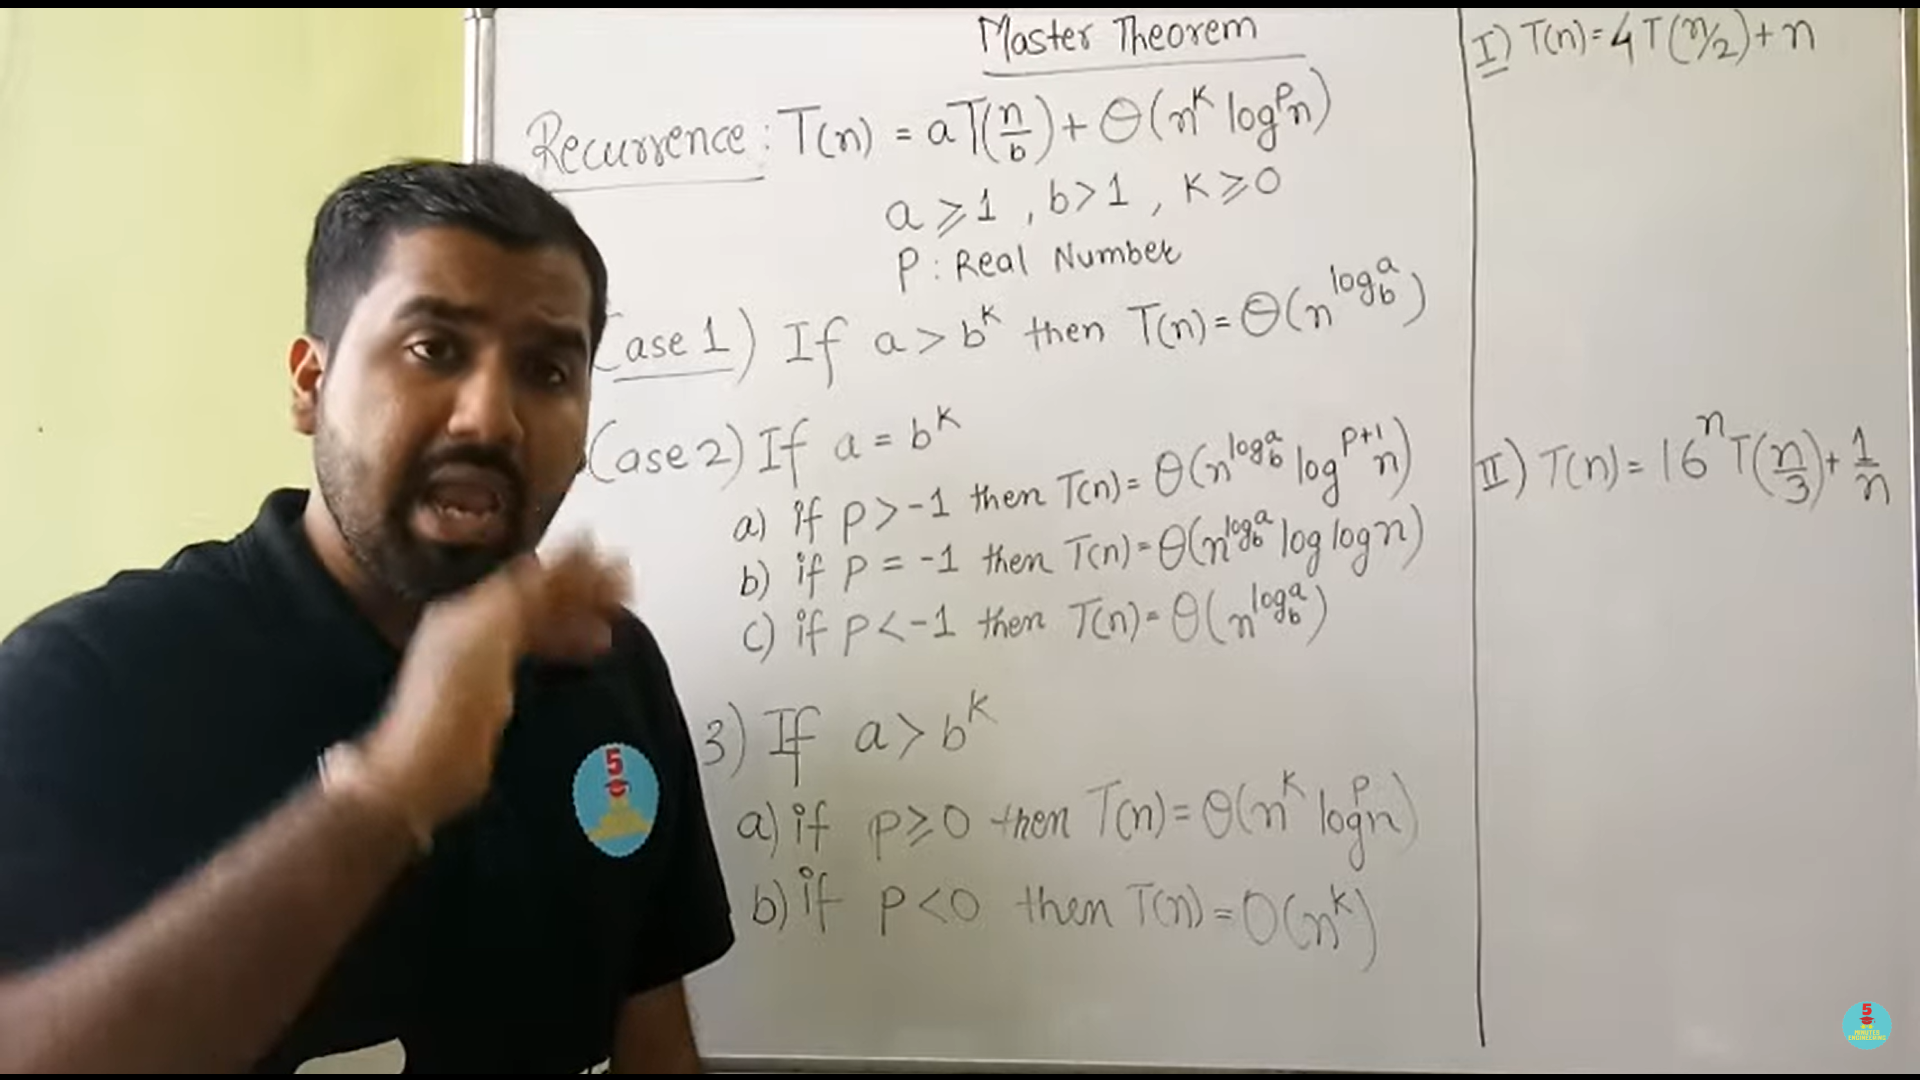 Master Theorem
Recurrence : T(n) = aT(n/b) + Θ(n^k log^p n)
a ⩾ 1 , b > 1 , k ⩾ 0
P : Real Number
Case 1) If a > b^k then T(n) = Θ(n^log_b^a)
Case 2) If a = b^k
a) if p > -1 then T(n) = Θ(n^log_b^a log^p+1 n)
b) if p = -1 then T(n) = Θ(n^log_b^a log log n)
c) if p < -1 then T(n) = Θ(n^log_b^a)
3) If a > b^k
a) if p ⩾ 0 then T(n) = Θ(n^k log^p n)
b) if p < 0 then T(n) = O(n^k)
I) T(n) = 4T(n/2) + n
II) T(n) = 16^n T(n/3) + 1/n
5
5
MINUTES
ENGINEERING